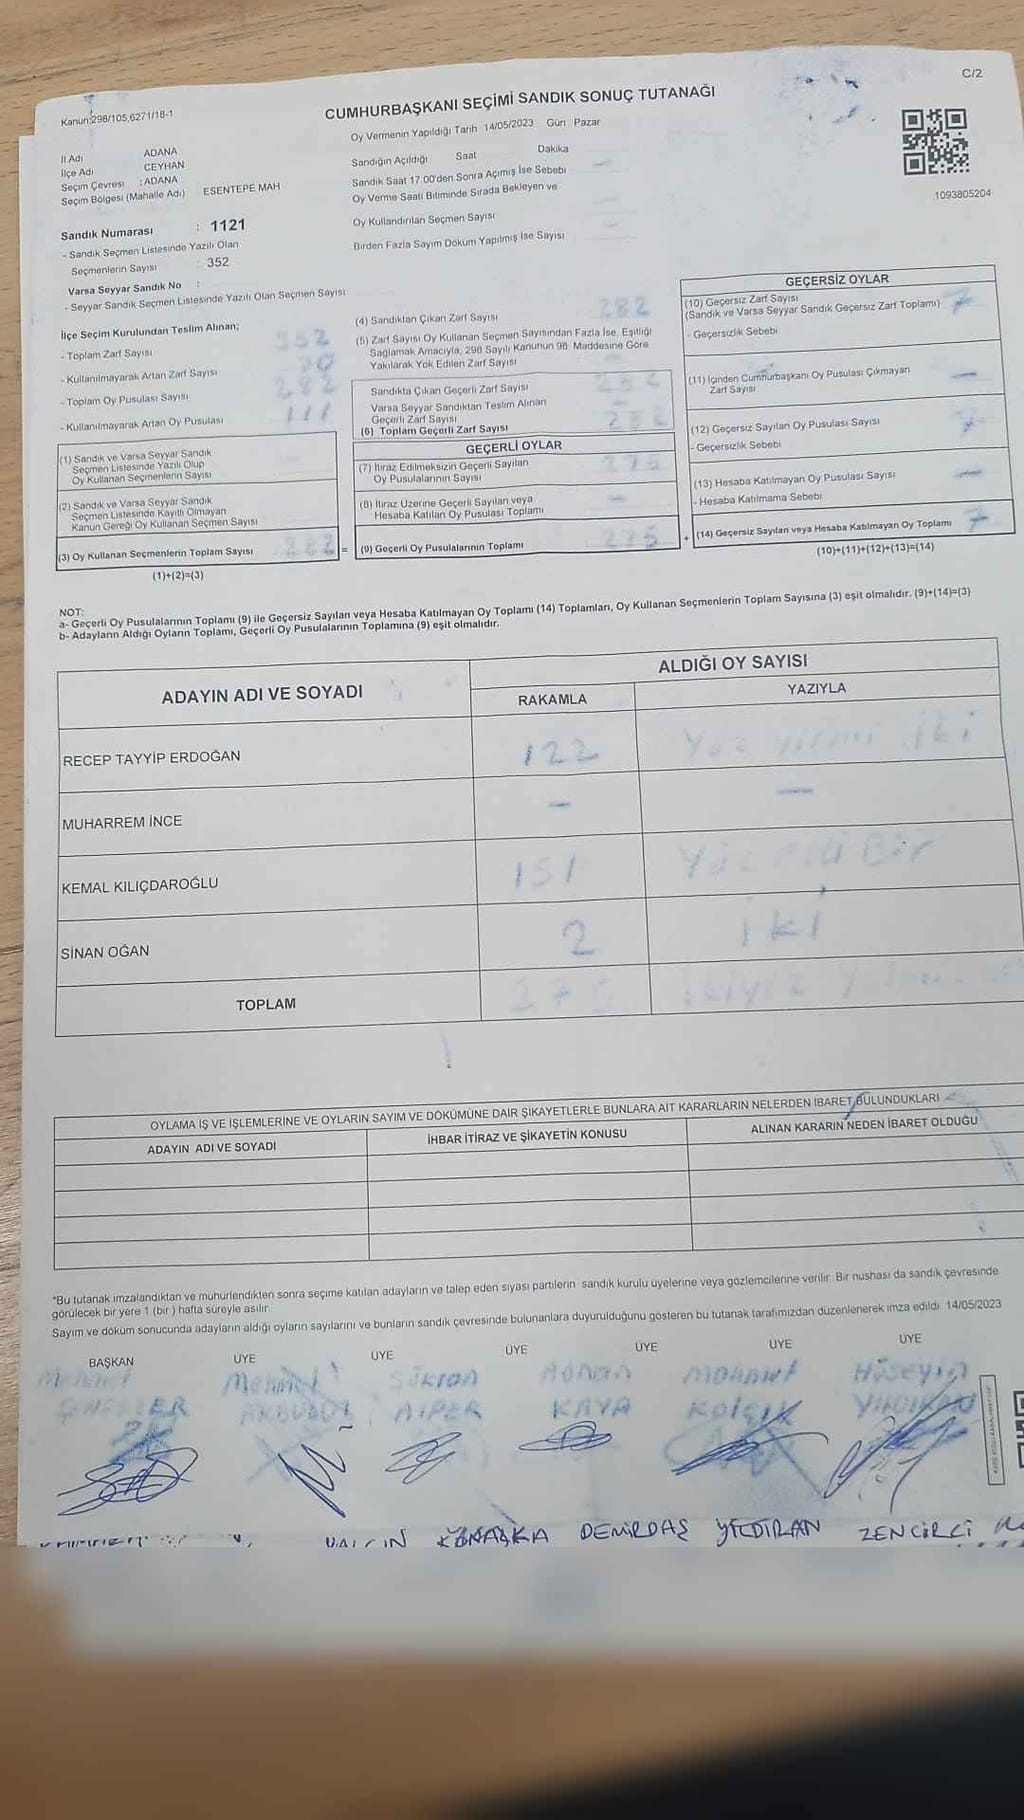 C/2
Kanun:298/105,6271/18-1
CUMHURBAŞKANI SEÇİMİ SANDIK SONUÇ TUTANAĞI
Oy Vermenin Yapıldığı Tarih 14/05/2023 Gün Pazar
1093805204
İl Adı ADANA
İlçe Adı CEYHAN
Seçim Çevresi :ADANA
Seçim Bölgesi (Mahalle Adı) ESENTEPE MAH
Sandık Numarası : 1121
- Sandık Seçmen Listesinde Yazılı Olan
Seçmenlerin Sayısı : 352
Varsa Seyyar Sandık No :
- Seyyar Sandık Seçmen Listesinde Yazılı Olan Seçmen Sayısı
Sandığın Açıldığı Saat Dakika
Sandık Saat 17:00'den Sonra Açımış İse Sebebi
Oy Verme Saati Bitiminde Sırada Bekleyen ve
Oy Kullandırılan Seçmen Sayısı
Birden Fazla Sayım Döküm Yapılmış İse Sayısı
İlçe Seçim Kurulundan Teslim Alınan;
- Toplam Zarf Sayısı 352
- Kullanılmayarak Artan Zarf Sayısı 70
- Toplam Oy Pusulası Sayısı 282
- Kullanılmayarak Artan Oy Pusulası 111
(1) Sandık ve Varsa Seyyar Sandık
Seçmen Listesinde Yazılı Olup
Oy Kullanan Seçmenlerin Sayısı
(2) Sandık ve Varsa Seyyar Sandık
Seçmen Listesinde Kayıtlı Olmayan
Kanun Gereği Oy Kullanan Seçmen Sayısı
(3) Oy Kullanan Seçmenlerin Toplam Sayısı 282 =
(1)+(2)=(3)
(4) Sandıktan Çıkan Zarf Sayısı 282
(5) Zarf Sayısı Oy Kullanan Seçmen Sayısından Fazla İse, Eşitliği
Sağlamak Amacıyla, 298 Sayılı Kanunun 98. Maddesine Göre
Yakılarak Yok Edilen Zarf Sayısı —
Sandıkta Çıkan Geçerli Zarf Sayısı 282
Varsa Seyyar Sandıktan Teslim Alınan
Geçerli Zarf Sayısı —
(6) Toplam Geçerli Zarf Sayısı 282
GEÇERLİ OYLAR
(7) İtiraz Edilmeksizin Geçerli Sayılan
Oy Pusulalarının Sayısı 275
(8) İtiraz Üzerine Geçerli Sayılan veya
Hesaba Katılan Oy Pusulası Toplamı —
(9) Geçerli Oy Pusulalarının Toplamı 275 +
GEÇERSİZ OYLAR
(10) Geçersiz Zarf Sayısı
(Sandık ve Varsa Seyyar Sandık Geçersiz Zarf Toplamı) 7
- Geçersizlik Sebebi
(11) İçinden Cumhurbaşkanı Oy Pusulası Çıkmayan
Zarf Sayısı —
(12) Geçersiz Sayılan Oy Pusulası Sayısı 7
- Geçersizlik Sebebi
(13) Hesaba Katılmayan Oy Pusulası Sayısı —
- Hesaba Katılmama Sebebi
(14) Geçersiz Sayılan veya Hesaba Katılmayan Oy Toplamı 7
(10)+(11)+(12)+(13)=(14)
NOT:
a- Geçerli Oy Pusulalarının Toplamı (9) ile Geçersiz Sayılan veya Hesaba Katılmayan Oy Toplamı (14) Toplamları, Oy Kullanan Seçmenlerin Toplam Sayısına (3) eşit olmalıdır. (9)+(14)=(3)
b- Adayların Aldığı Oyların Toplamı, Geçerli Oy Pusulalarının Toplamına (9) eşit olmalıdır.
ADAYIN ADI VE SOYADI
ALDIĞI OY SAYISI
RAKAMLA YAZIYLA
RECEP TAYYİP ERDOĞAN 122 Yüz yirmi iki
MUHARREM İNCE — —
KEMAL KILIÇDAROĞLU 151 Yüz elli Bir
SİNAN OĞAN 2 iki
TOPLAM 275 ikiyüz
OYLAMA İŞ VE İŞLEMLERİNE VE OYLARIN SAYIM VE DÖKÜMÜNE DAİR ŞİKAYETLERLE BUNLARA AİT KARARLARIN NELERDEN İBARET BULUNDUKLARI
ADAYIN ADI VE SOYADI İHBAR İTİRAZ VE ŞİKAYETİN KONUSU ALINAN KARARIN NEDEN İBARET OLDUĞU
*Bu tutanak imzalandıktan ve mühürlendikten sonra seçime katılan adayların ve talep eden siyasi partilerin sandık kurulu üyelerine veya gözlemcilerine verilir. Bir nushası da sandık çevresinde
görülecek bir yere 1 (bir ) hafta süreyle asılır.
Sayım ve döküm sonucunda adayların aldığı oyların sayılarını ve bunların sandık çevresinde bulunanlara duyurulduğunu gösteren bu tutanak tarafımızdan düzenlenerek imza edildi. 14/05/2023
BAŞKAN ÜYE ÜYE ÜYE ÜYE ÜYE ÜYE
Mehmet Mehmet Şükran Adnan Mahmut Hüseyin
ALPER KAYA
DEMİRDAŞ YILDIRAN ZENCİRCİ